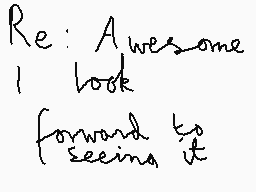 Re: Awesome
I look
forward to
seeing it